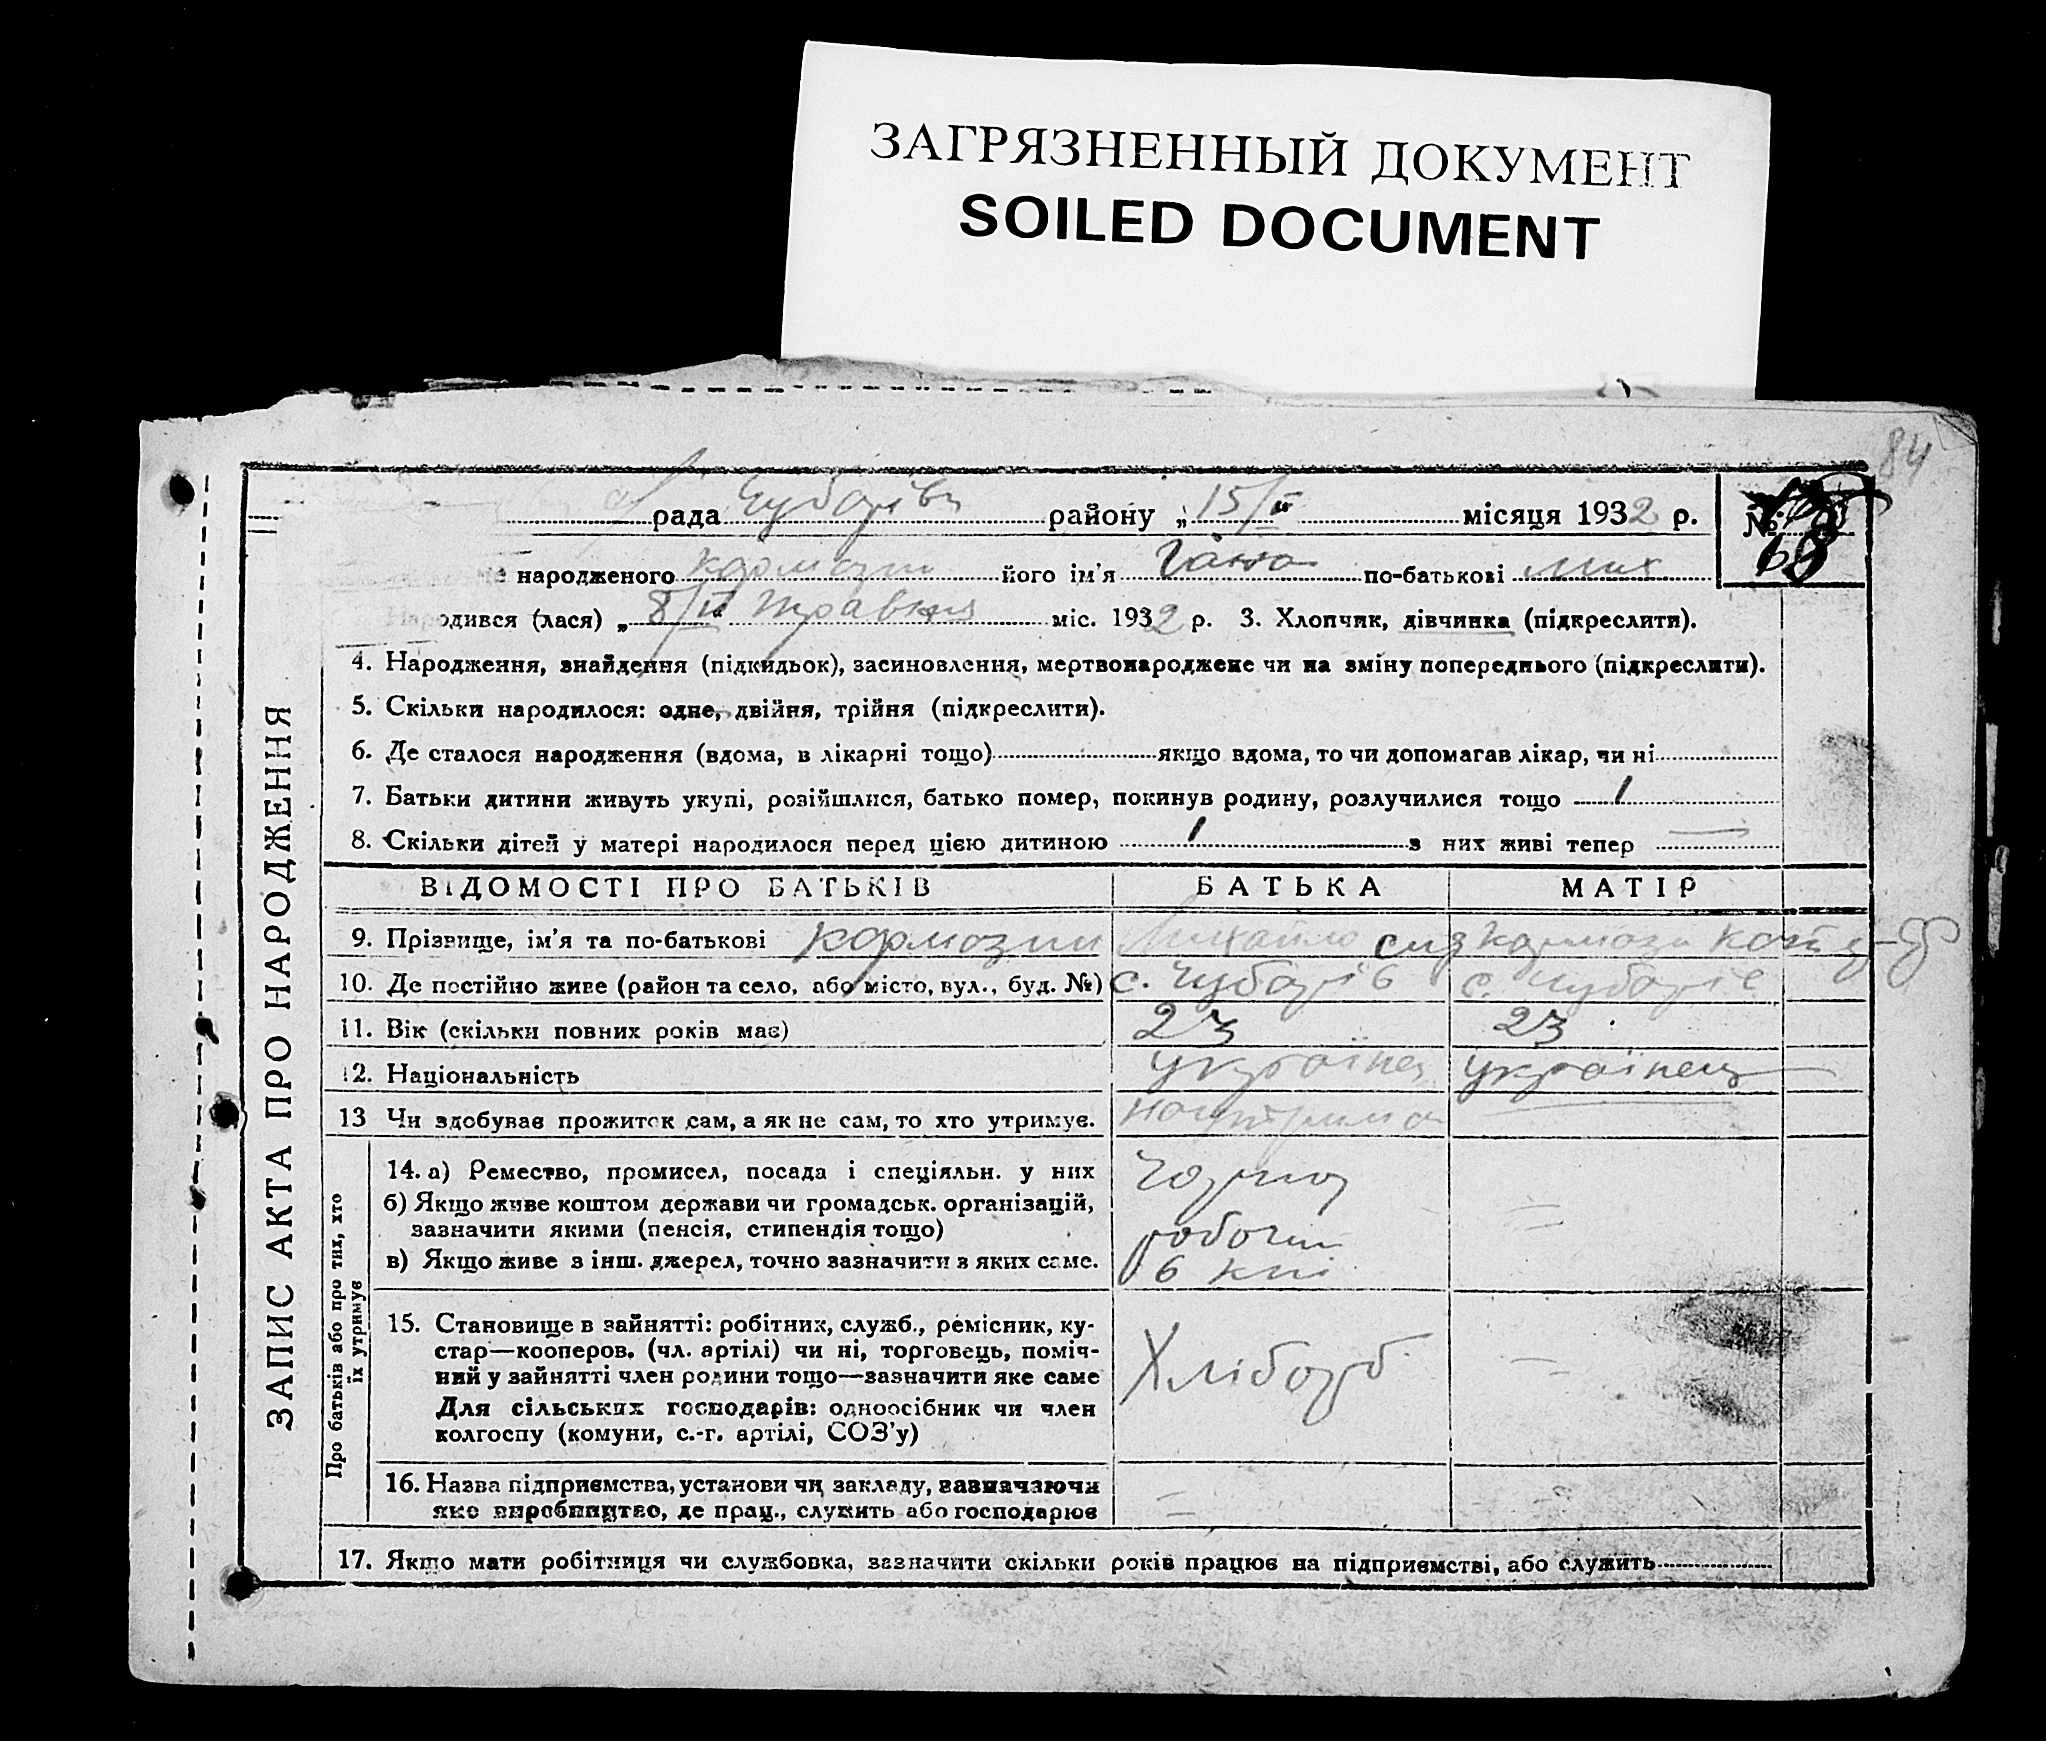 ЗАГРЯЗНЕННЫЙ ДОКУМЕНТ
SOILED DOCUMENT
84
рада району „15/ “ місяця 1932 р. №
народженого його ім'я по-батькові Мих
одився (лася) „8/ “ травня міс. 1932 р. 3. Хлопчик, дівчинка (підкреслити).
4. Народження, знайдення (підкидьок), засиновлення, мертвонароджене чи на зміну попереднього (підкреслити).
5. Скільки народилося: одне, двійня, трійня (підкреслити).
6. Де сталося народження (вдома, в лікарні тощо) якщо вдома, то чи допомагав лікар, чи ні
7. Батьки дитини живуть укупі, розійшлися, батько помер, покинув родину, розлучилися тощо 1
8. Скільки дітей у матері народилося перед цією дитиною 1 з них живі тепер —
ВІДОМОСТІ ПРО БАТЬКІВ БАТЬКА МАТІР
9. Прізвище, ім'я та по-батькові Михайло
10. Де постійно живе (район та село, або місто, вул., буд. №) с. с.
11. Вік (скільки повних років має) 23 23
12. Національність українец українец
13 Чи здобуває прожиток сам, а як не сам, то хто утримує.
14. а) Ремество, промисел, посада і спеціяльн. у них
б) Якщо живе коштом держави чи громадськ. організацій,
зазначити якими (пенсія, стипендія тощо)
в) Якщо живе з інш. джерел, точно зазначити з яких саме.
15. Становище в зайнятті: робітник, служб., ремісник, ку-
стар—кооперов. (чл. артілі) чи ні, торговець, поміч-
ний у зайнятті член родини тощо—зазначити яке саме
Для сільських господарів: одноосібник чи член
колгоспу (комуни, с.-г. артілі, СОЗ'у)
Хлібороб
16. Назва підприємства, установи чи закладу, зазначаючи
яке виробництво, де прац., служить або господарює
17. Якщо мати робітниця чи службовка, зазначити скільки років працює на підприємстві, або служить
ЗАПИС АКТА ПРО НАРОДЖЕННЯ
Про батьків або про тих, хто
їх утримує